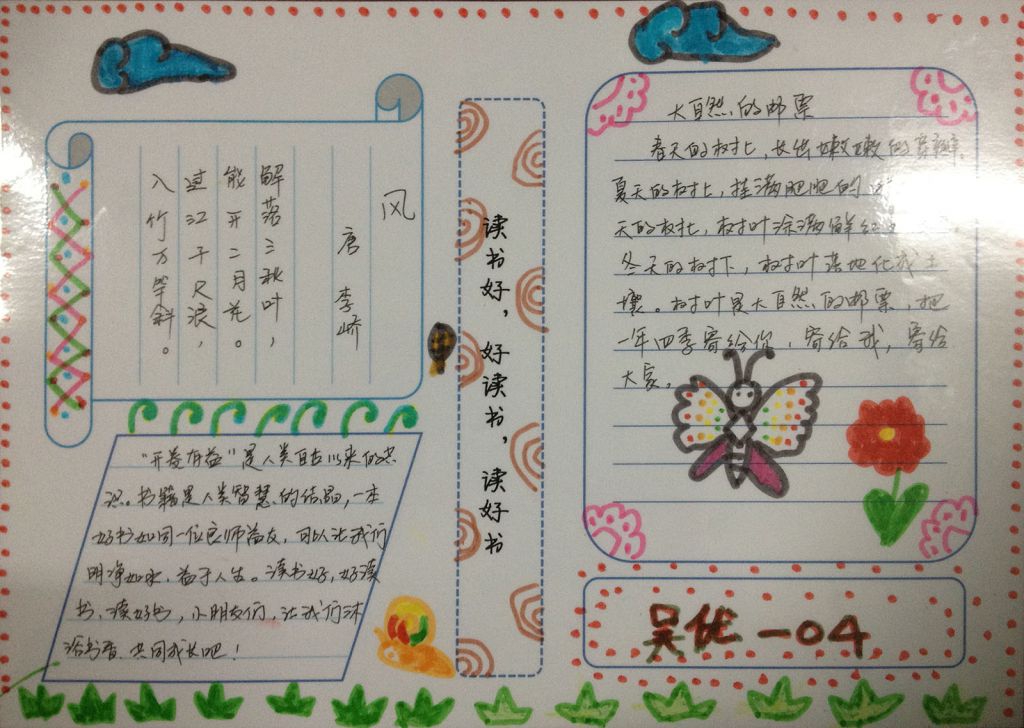 风
唐 李峤
解落三秋叶，
能开二月花。
过江千尺浪，
入竹万竿斜。
“开卷有益”是人类自古以来的共
识。书籍是人类智慧的结晶，一本
好书如同一位良师益友，可以让我们
明净如水，益于人生。读书好，好读
书、读好书，小朋友们，让我们沐
浴书香，共同成长吧！
读书好，好读书，读好书
大自然的邮票
春天的树上，长出嫩嫩的
夏天的树上，挂满肥肥的
天的树上，树叶涂满鲜红
冬天的树下，树叶落地化成土
壤。树叶是大自然的邮票，把
一年四季寄给你，寄给我，寄给
大家。
吴优一04